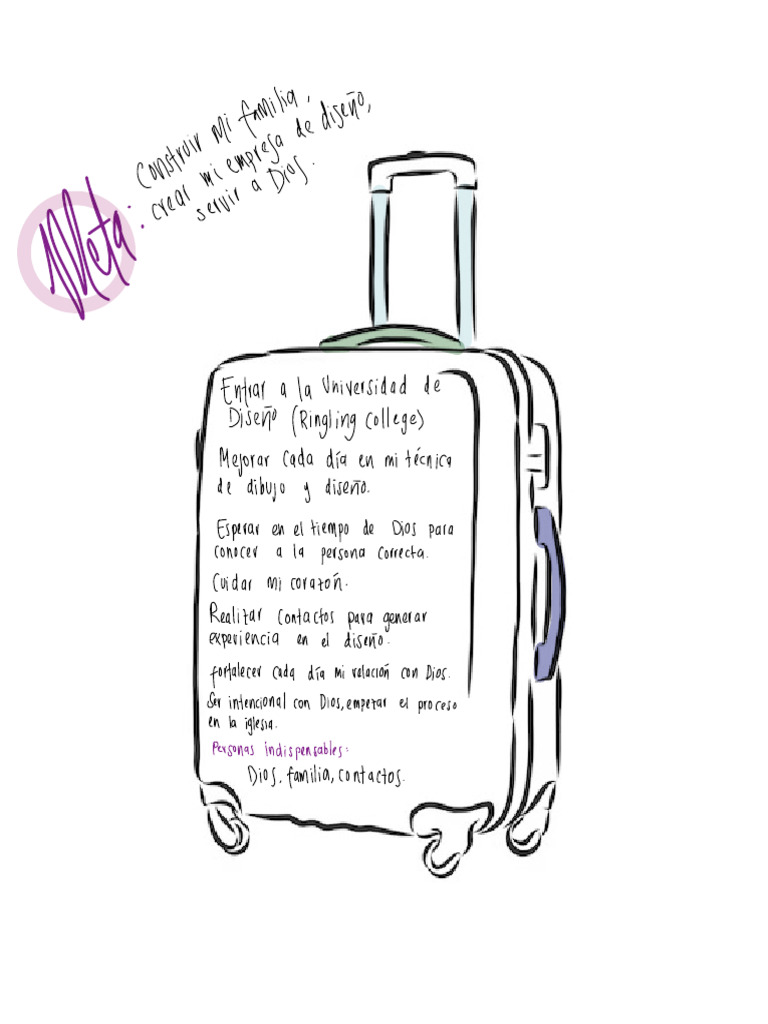 Meta:
Construir mi familia,
crear mi empresa de diseño,
servir a Dios.
Entrar a la Universidad de
Diseño (Ringling College)
Mejorar cada día en mi técnica
de dibujo y diseño.
Esperar en el tiempo de Dios para
conocer a la persona correcta.
Cuidar mi corazón.
Realizar contactos para generar
experiencia en el diseño.
fortalecer cada día mi relación con Dios.
Ser intencional con Dios, empezar el proceso
en la iglesia.
Personas indispensables:
Dios, familia, contactos.